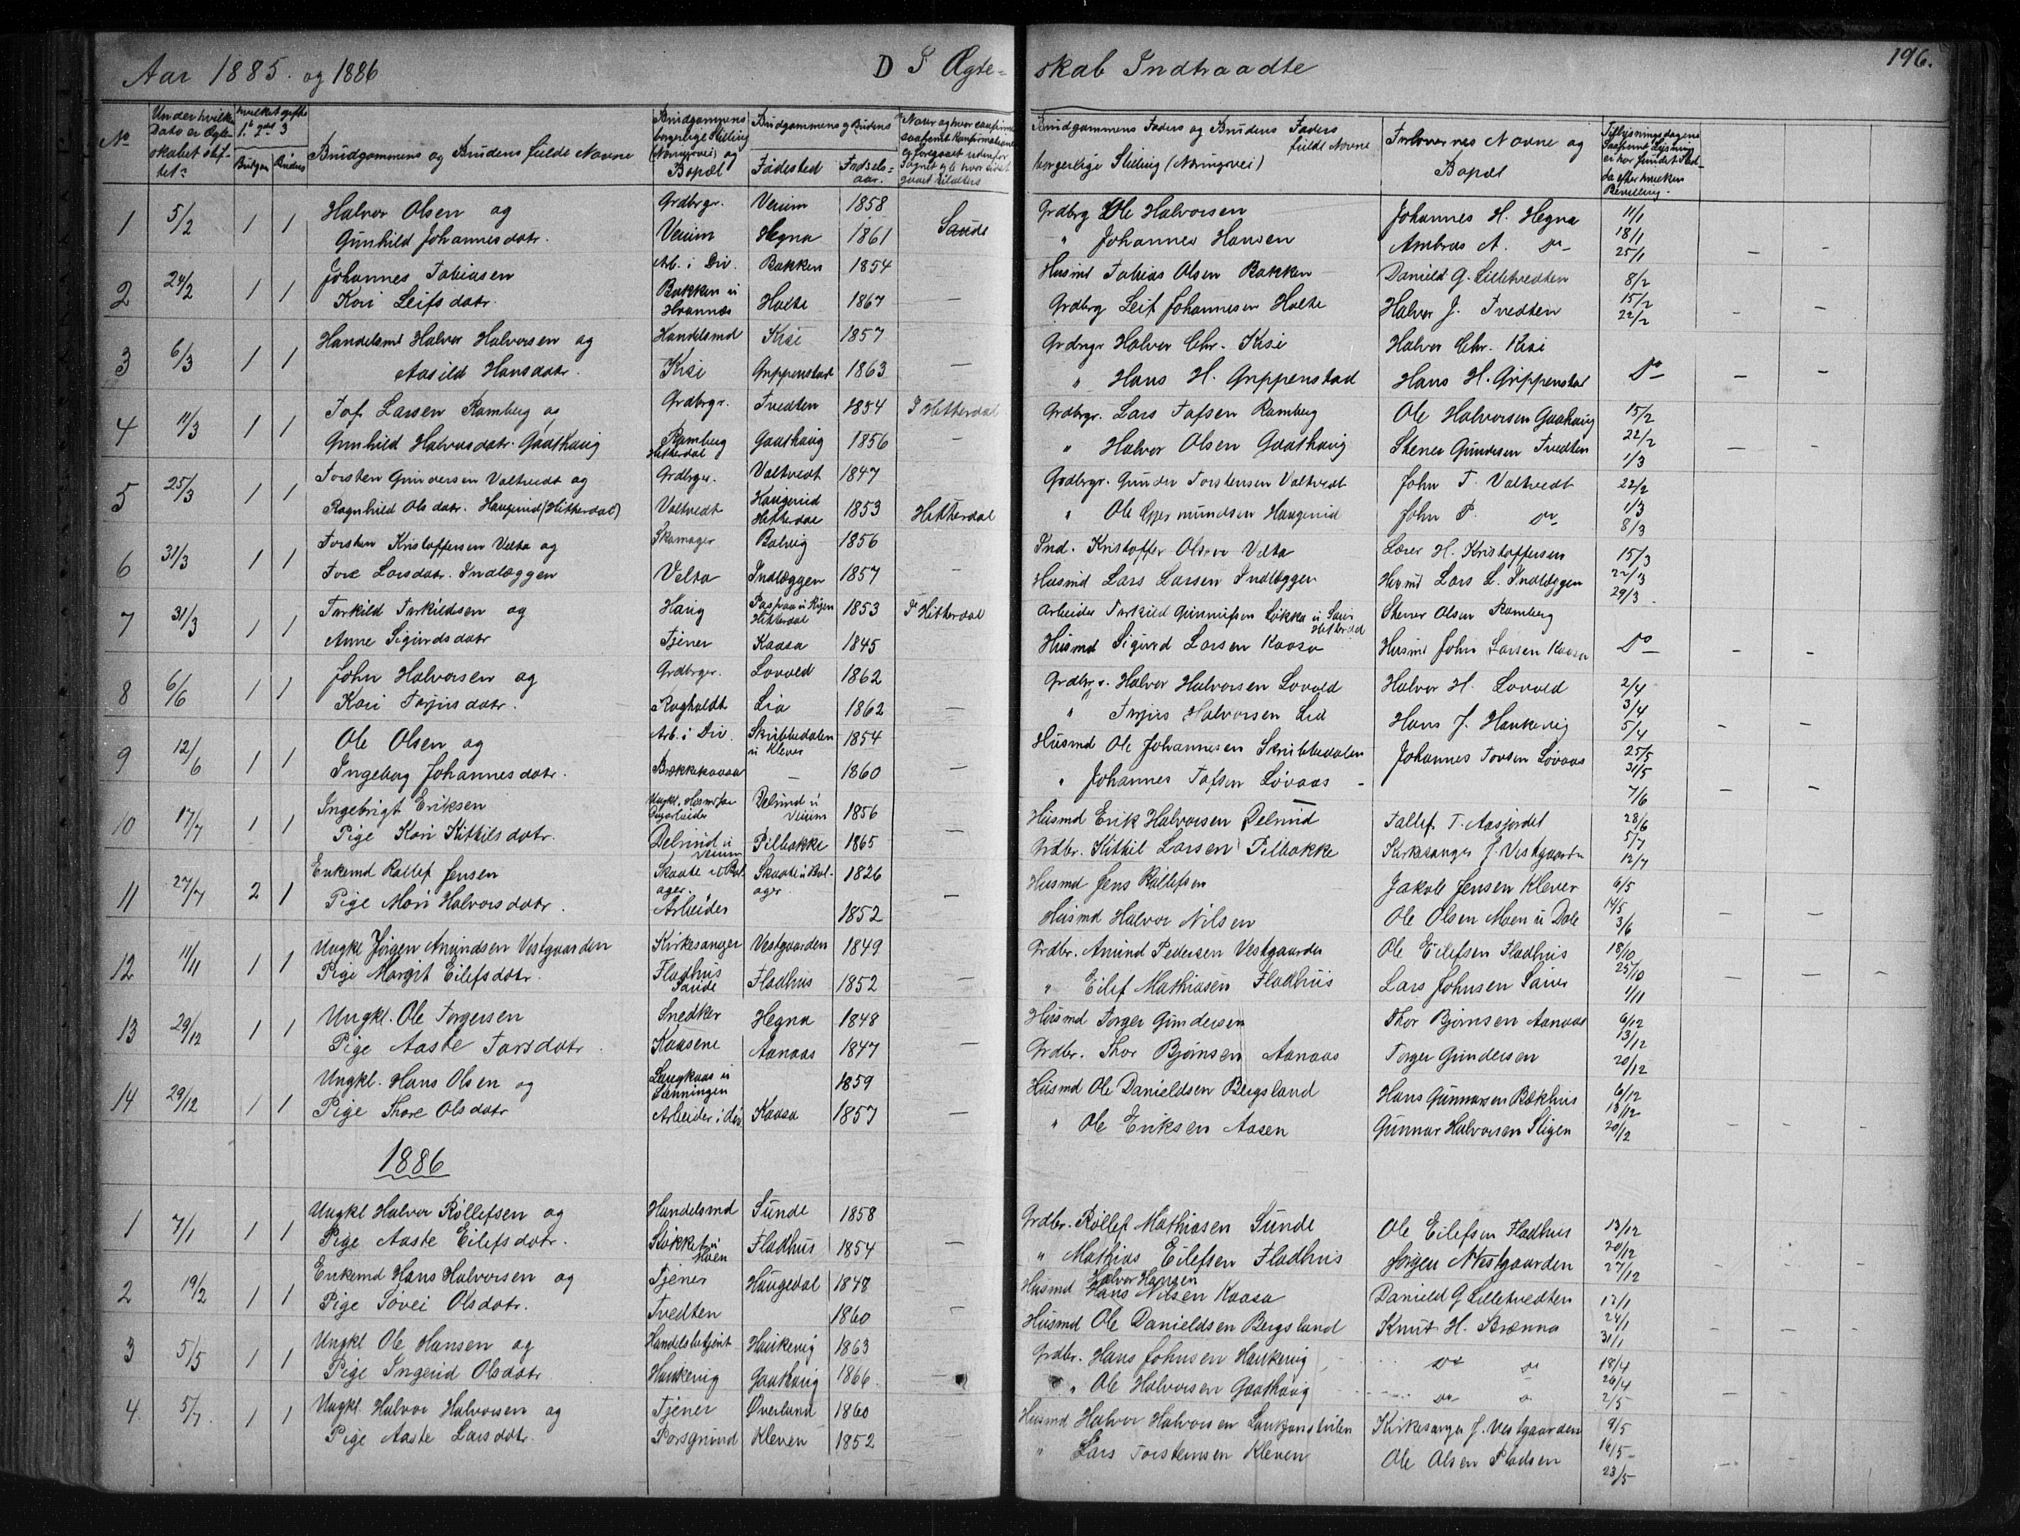 Aar 1885. og 1886 D I Ægte= skab Indtraadte 196.
No Under hvilken Dato er Ægteskabet stiftet Brudgommens og Brudens fulde Navne Brudgommens borgerlige Stilling (Næringsvei) og Bopæl Brudgommens og Brudens Fødested Fødsels-aar. Brudgommens Faders og Brudens Faders fulde Navne borgerlige Stilling (Næringsvei) Forlovernes Navne og Bopæl
1 5/2 1 1 Halvor Olsen og Grdbrgr. Veium 1858 Grdbrg Ole Halvorsen Johannes H. Hegna 11/1
Gunhild Johannesdatr. Veium Hegna 1861 Saude " Johannes Hansen Ambros A. Do 18/1 25/1
2 24/2 1 1 Johannes Tobiasen Arb. i Div. Bakken 1854 Husmd Tobias Olsen Bakken Danield G. Lilletvedten 8/2
Kari Leifsdatr. Bakken u Hvannæs Holte 1867 — Grdbrg Leif Johannesen Holte Halvor J. Tvedten 15/2 22/2
3 6/3 1 1 Handelsmd Halvor Halvorsen og Handelsmd Kisi 1857 Grdbrgr Halvor Chr. Kisi Halvor Chr. Kisi
Aasild Hansdatr. Kisi Grippenstad 1863 — " Hans H. Grippenstad Hans H. Grippenstad Do
4 11/3 1 1 Tof. Larsen Ramberg og Grdbrgr. Tvedten 1854 I Hitterdal Grdbrgr. Lars Tofsen Ramberg Ole Halvorsen Gaahaug 15/2
Gunhild Halvorsdatr. Gaathaug Ramberg Hitterdal Gaathaug 1856 — " Halvor Olsen Gaathaug Stener Gundersen Tvedten 22/2 1/3
5 25/3 1 1 Torsten Gundersen Valtvedt og Grdbrgr. Valtvedt 1847 Grdbrgr. Gunder Torstensen Valtvedt John T. Valtvedt 22/2
Ragnhild Olsdatr. Haugerud (Hitterdal) Valtvedt Haugerud Hitterdal 1853 Hitterdal " Ole Gjermundsen Haugerud John P. Do 1/3 8/3
6 31/3 1 1 Torsten Kristoffersen Velta og Skomager Bolvig 1856 Ind. Kristoffer Olsen Velta Lærer H. Kristoffersen 15/3
Tore Larsdatr. Indlæggen Velta Indlæggen 1857 Husmd Lars Larsen Indlæggen Husmd Lars L. Indlæggen 22/3 29/3
7 31/3 1 1 Tarkild Tarkildsen og Haug Hitterdal 1853 I Hitterdal Arbeider Tarkild Gunnufsen Løkka u Sauer Hitterdal Stener Olsen Ramberg
Anne Sigurdsdatr Tjener Kaasa 1845 Husmd Sigurd Larsen Kaasa Husmd John Larsen Kaasa Do
8 6/6 1 1 John Halvorsen og Grdbrgr. Lovold 1862 Grdbrgr. Halvor Halvorsen Lovold Halvor H. Lovold 2/4
Kari Torjusdatr. Rogholdt Lia 1862 — " Torjus Halvorsen Lid Hans J. Haukevig 3/4 5/4
9 12/6 1 1 Ole Olsen og Arb. i Div. Skribbedalen u Klever 1854 Husmd Ole Johannesen Skribbedalen Johannes Tovsen Løvaas 25/5
Ingeborg Johannesdatr. Brokkekaasa — 1860 — " Johannes Tofsen Løvaas 31/5 7/6
10 17/7 1 1 Ingebrigt Eriksen Delrind u Veium 1856 Husmd Erik Halvorsen Delrind Tallef T. Aasjordet 28/6
Pige Kari Kittilsdatr. Delrind u Veium Pilbakke 1865 — Grdbr. Kittil Larsen Pilbakke Kirkesanger J. Vestgaarden 5/7 12/7
11 27/7 2 1 Enkemd Rollef Jensen Skaate u Bolager. Skaate u Bolager 1826 Husmd Jens Rollefsen Jakob Jensen Klever 6/5
Pige Mari Halvorsdatr. Arbeider 1852 — Husmd Halvor Nilsen Ole Olsen Moen u Dole 14/5 3/6
12 11/11 1 1 Ungkl Jørgen Amundsen Vestgaarden Kirkesanger Vestgaarden 1849 Grdbr. Amund Pedersen Vestgaarden Ole Eilefsen Fladhus 18/10
Pige Margit Eilefsdatr. Fladhus Saude Fladhus 1852 — " Eilef Mathiasen Fladhus Lars Johnsen Sauer 25/10 1/11
13 29/12 1 1 Ungkl. Ole Torgersen Snedker Hegna 1848 Husmd Torger Gundersen Thor Bjørnsen Aanaas 6/12
Pige Aaste Torsdatr. Kaasene Aanaas 1847 — Grdbr. Thor Bjørnsen Aanaas Torger Gundersen 13/12 20/12
14 29/12 1 1 Ungkl. Hans Olsen og Langkaas u Lønningen 1859 Husmd Ole Danieldsen Bergsland Hans Gunnarsen Bækhus 6/12
Pige Thore Olsdatr Arbeider i Div Kaasa 1857 — " Ole Eriksen Aasen Gunnar Halvorsen Stigen 13/12 20/12
1886
1 7/1 1 1 Ungkl Halvor Røllefsen og Handelsmd Sunde 1858 Grdbr. Røllef Mathiasen Sunde Ole Eilefsen Fladhus 13/12
Pige Aaste Eilefsdatr. Stokket u Moen Fladhus 1854 — " Mathias Eilefsen Fladhus Jørgen Vestgaarden 20/12 27/12
2 19/2 1 1 Enkemd Hans Halvorsen og Tjener Haugedal 1848 Husmd Halvor Hansen Hans Nilsen Kaasa Danield G Lilletvedten 17/1
Pige Søvei Olsdatr. Tvedten 1860 — Husmd Ole Danieldsen Bergsland Knut H. Brænna 24/1 31/1
3 5/5 1 1 Ungkl Ole Hansen og Handelsbetjent Haukevig 1863 Grdbr. Hans Johnsen Haukevig Do Do 18/4
Pige Ingerid Olsdatr. Haukevig Gaathaug 1866 " Ole Halvorsen Gaathaug Do 26/4 2/5
4 5/7. 1 1 Ungkl. Halvor Halvorsen og Tjener Øverland 1860 Husmd Halvor Halvorsen Kirkesanger J. Vestgaarden 9/5
Pige Aaste Larsdatr. Porsgrund Kleven 1852 — " Lars Torstensen Kleven Ole Olsen Pladsen 16/5 23/5